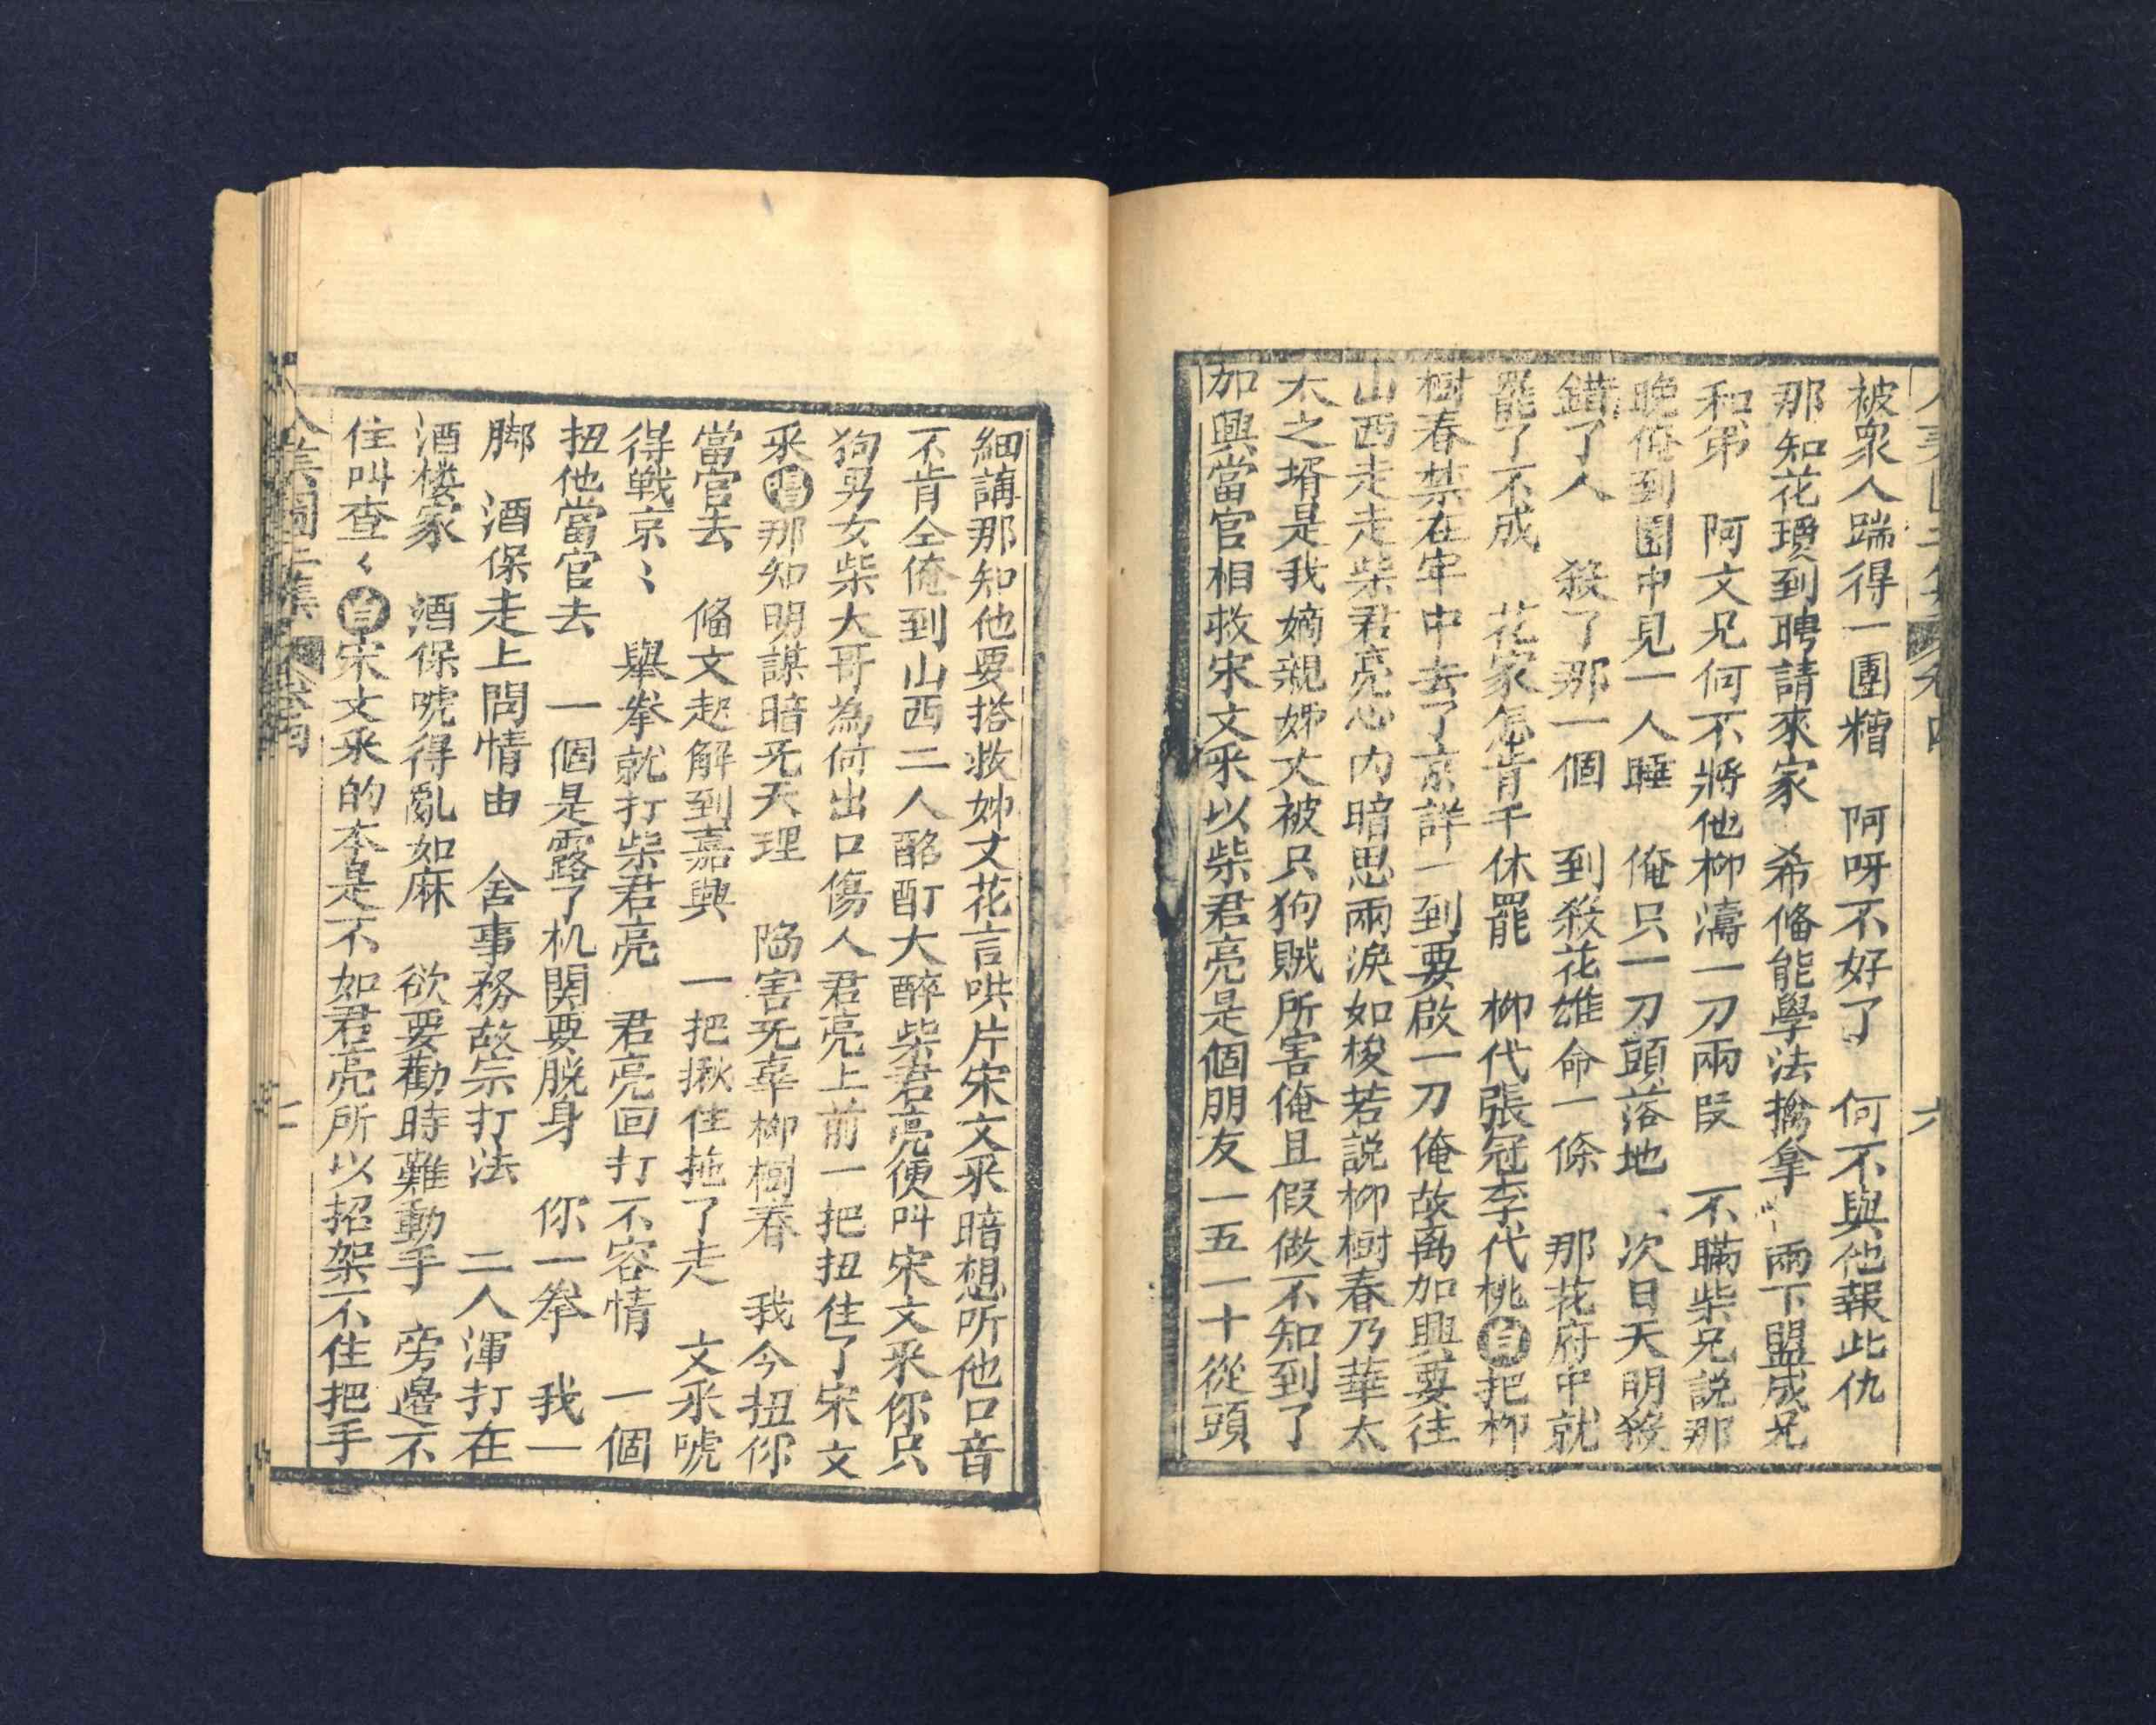 被衆人踹得一團糟　阿呀不好了　何不與他報此仇
那知花瓊到聘請來家　希俻能學法擒拿　兩下盟成兄
和弟　阿文兄何不將他柳濤一刀兩段　不瞞柴兄說那
晚俺到園中見一人睡　俺只一刀頭落地　次日天明殺
錯了人　殺了那一個　到殺花雄命一條　那花府中就
罷了不成　花家怎肯干休罷　柳代張冠李代桃 白 把柳
樹春禁在牢中去了京詳一到要啟一刀俺故离加興要往
山西走走柴君亮心內暗思兩淚如梭若説柳樹春乃華太
太之壻是我嫡親姊丈被只狗賊所害俺且假做不知到了
加興當官相救宋文采以柴君亮是個朋友一五一十從頭
細講那知他要搭救姊丈花言哄片宋文采暗想所他口音
不肯仝俺到山西二人酩酊大醉柴君亮便叫宋文采你只
狗男女柴大哥為何出口傷人君亮上前一把扭住了宋文
采 唱 那知明謀暗无天理　陷害无辜柳樹春　我今扭你
當官去　俻文起解到嘉興　一把揪住拖了走　文采唬
得戰京〻　舉拳就打柴君亮　君亮回打不容情　一個
扭他當官去　一個是露了机関要脱身　你一拳　我一
脚　酒保走上問情由　舍事務故宗打法　二人渾打在
酒楼家　酒保唬得亂如麻　欲要勸時難動手　旁邊不
住叫查〻 白 宋文采的本是不如君亮所以招架不住把手